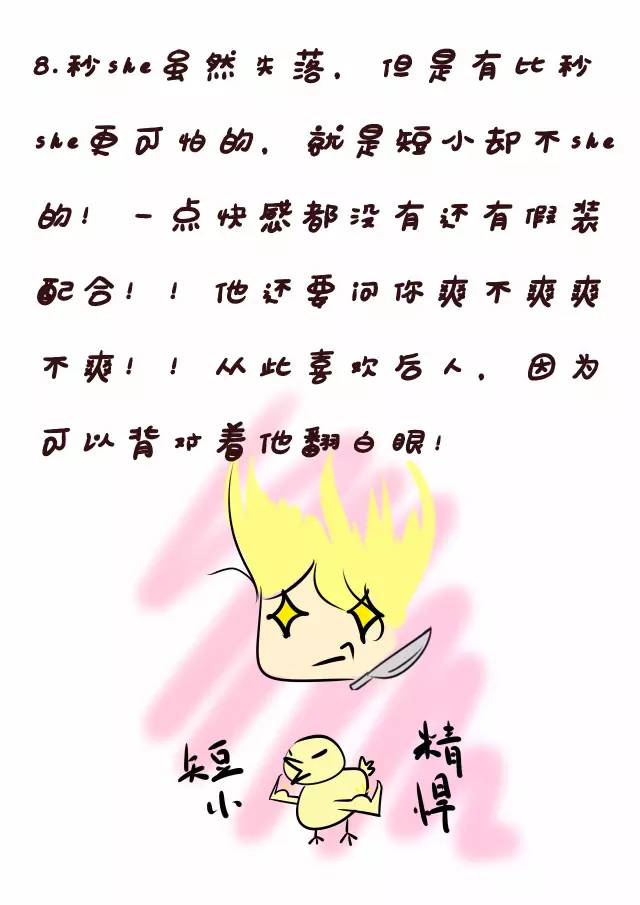 8.秒she虽然失落，但是有比秒
she更可怕的，就是短小却不she
的！一点快感都没有还有假装
配合！！他还要问你爽不爽爽
不爽！！从此喜欢后人，因为
可以背对着他翻白眼！
短小
精悍